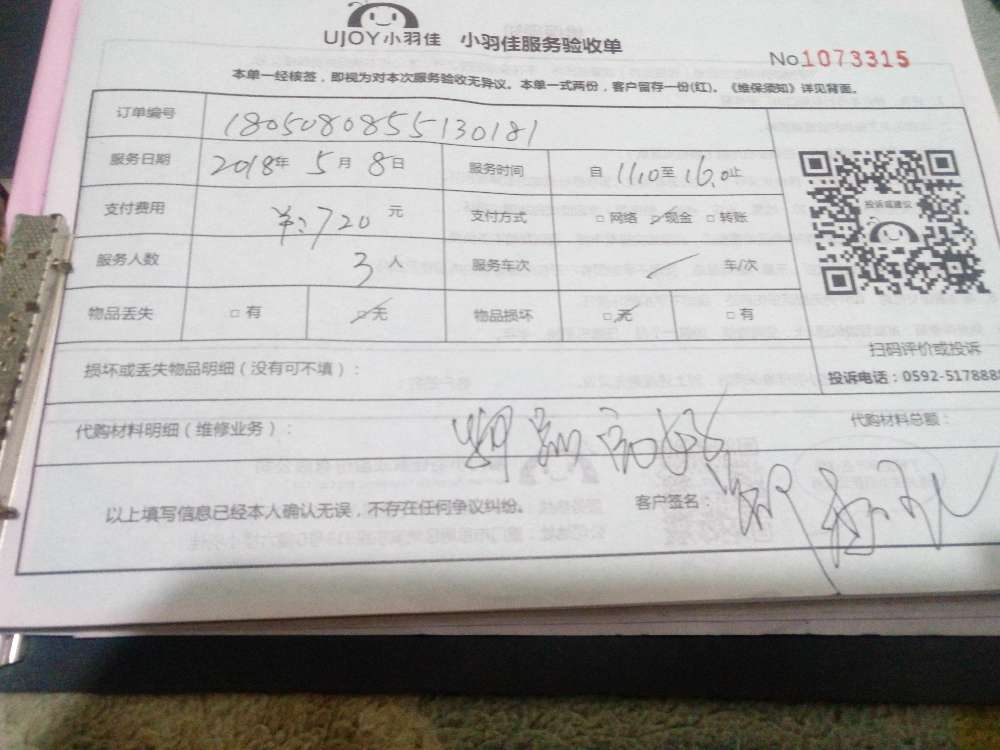 UJOY小羽佳 小羽佳服务验收单
No1073315
本单一经核签，即视为对本次服务验收无异议。本单一式两份，客户留存一份(红)。《维保须知》详见背面。
订单编号 1805080855130181
服务日期 2018年 5月 8日 服务时间 自 11.0至 16.0止
支付费用 ￥:720 元 支付方式 □网络 ☑现金 □转账
服务人数 3人 服务车次 / 车/次
物品丢失 □有 ☑无 物品损坏 ☑无 □有
投诉或建议
扫码评价或投诉
投诉电话：0592-5178888
损坏或丢失物品明细（没有可不填）：
代购材料明细（维修业务）： 代购材料总额：
以上填写信息已经本人确认无误，不存在任何争议纠纷。 客户签名：